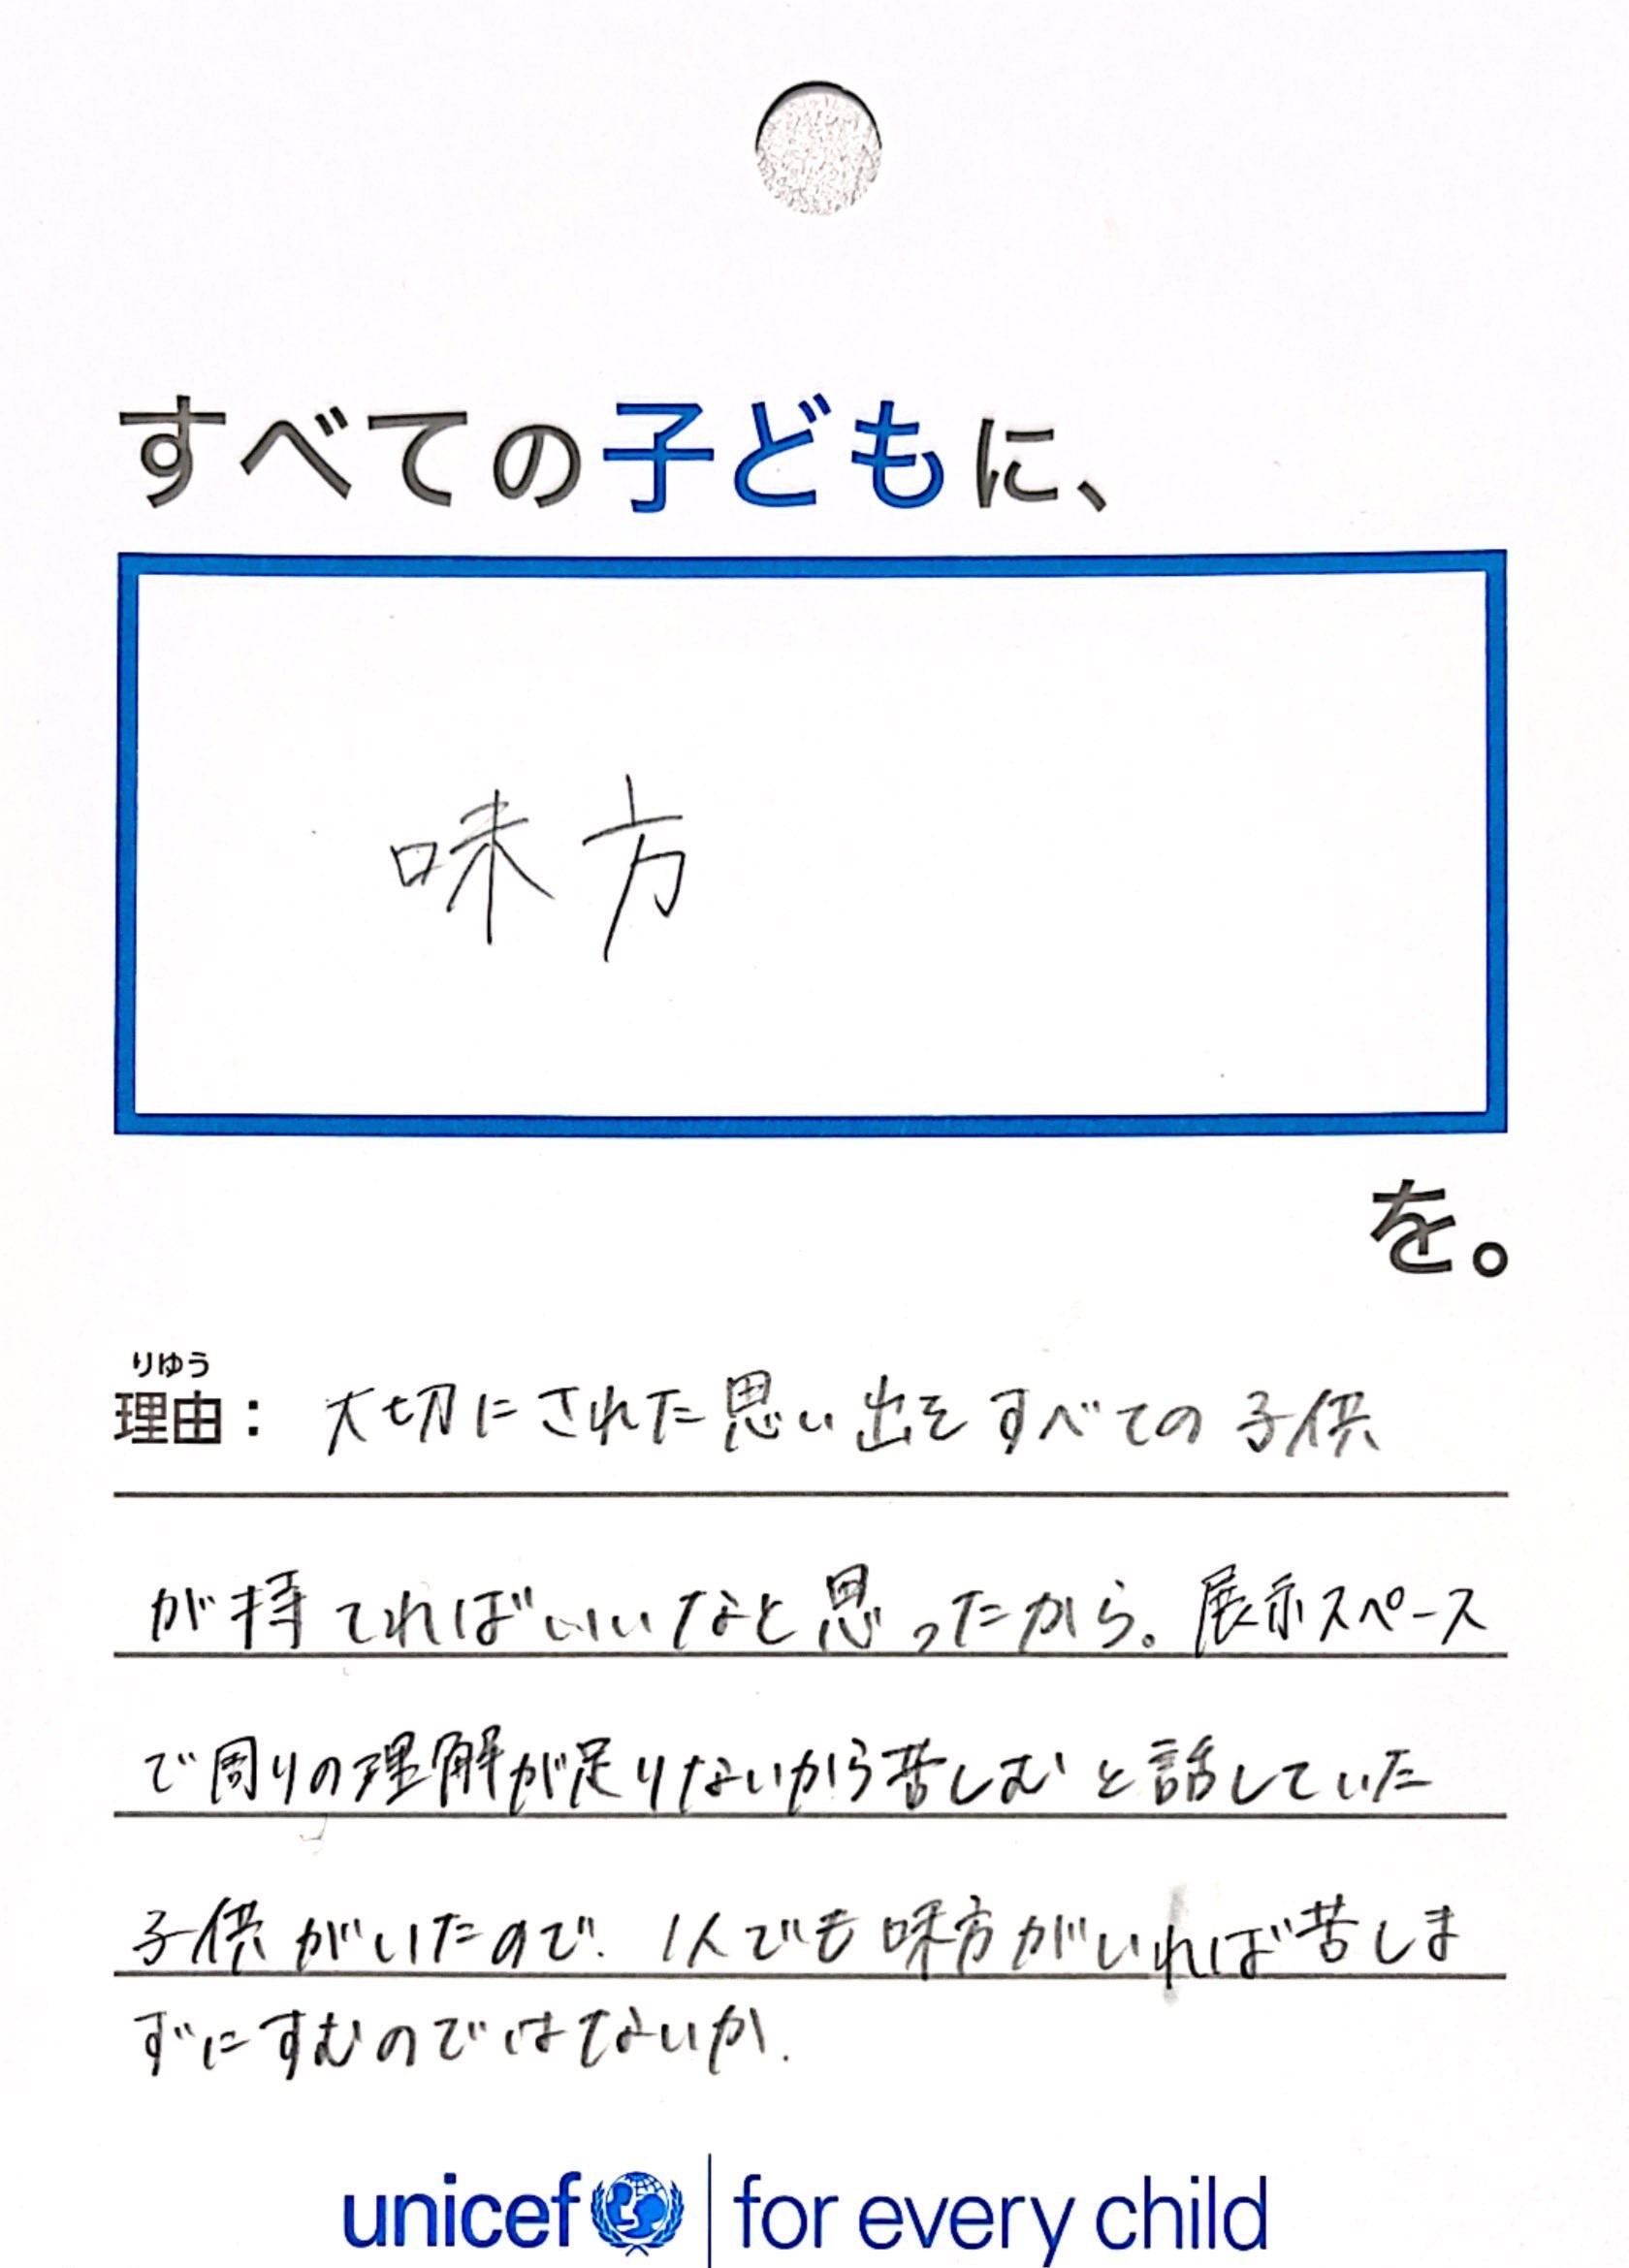 すべての子どもに、
味方
を。
りゆう
理由： 大切にされた思い出をすべての子供
が持てればいいなと思ったから。展示スペース
で周りの理解が足りないから苦しむと話していた
子供がいたので、1人でも味方がいれば苦しま
ずにすむのではないか.
unicef for every child